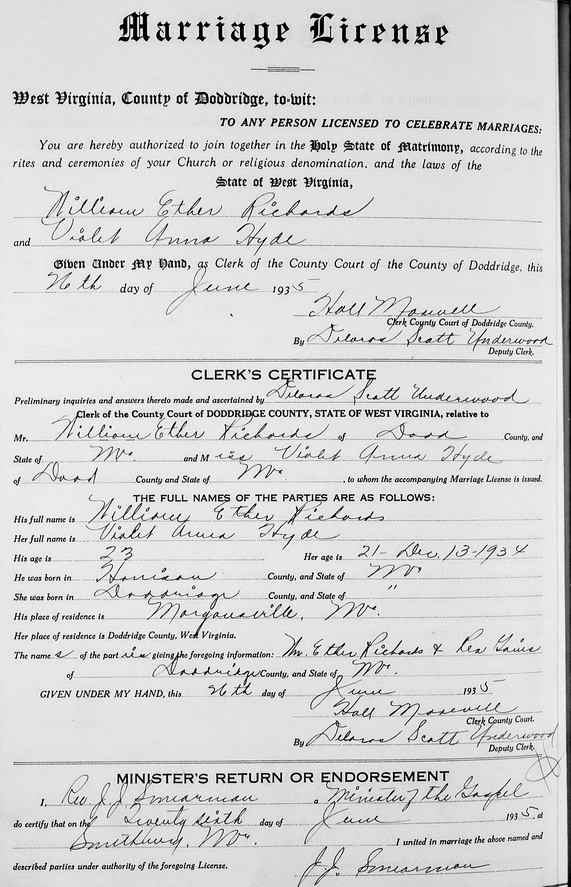 Marriage License
West Virginia, County of Doddridge, to-wit:
TO ANY PERSON LICENSED TO CELEBRATE MARRIAGES:
You are hereby authorized to join together in the Holy State of Matrimony, according to the
rites and ceremonies of your Church or religious denomination, and the laws of the
State of West Virginia,
William Ether Richards
and Violet Anna Hyde
Given Under My Hand, as Clerk of the County Court of the County of Doddridge, this
26th day of June 1935
Hall Maxwell
Clerk County Court of Doddridge County.
By Deloras Scott Underwood
Deputy Clerk.
CLERK'S CERTIFICATE
Preliminary inquiries and answers thereto made and ascertained by Deloras Scott Underwood
Clerk of the County Court of DODDRIDGE COUNTY, STATE OF WEST VIRGINIA, relative to
Mr. William Ether Richards of Dodd County, and
State of WVa and Miss Violet Anna Hyde
of Dodd County and State of WVa , to whom the accompanying Marriage License is issued.
THE FULL NAMES OF THE PARTIES ARE AS FOLLOWS:
His full name is William Ether Richards
Her full name is Violet Anna Hyde
His age is 23 Her age is 21- Dec. 13-1934
He was born in Harrison County, and State of WVa
She was born in Doddridge County, and State of "
His place of residence is Morgansville, WVa.
Her place of residence is Doddridge County, West Virginia.
The names of the parties giving the foregoing information: Mr. Ether Richards & Rex
of Doddridge County, and State of WVa.
GIVEN UNDER MY HAND, this 26th day of June 1935
Hall Maxwell
Clerk County Court.
By Deloras Scott Underwood
Deputy Clerk.
MINISTER'S RETURN OR ENDORSEMENT
I, Rev. J. J. Smearman a Minister of the Gospel
do certify that on the Twenty sixth day of June 1935, at
Smithburg, WVa. I united in marriage the above named and
described parties under authority of the foregoing License. J. J. Smearman